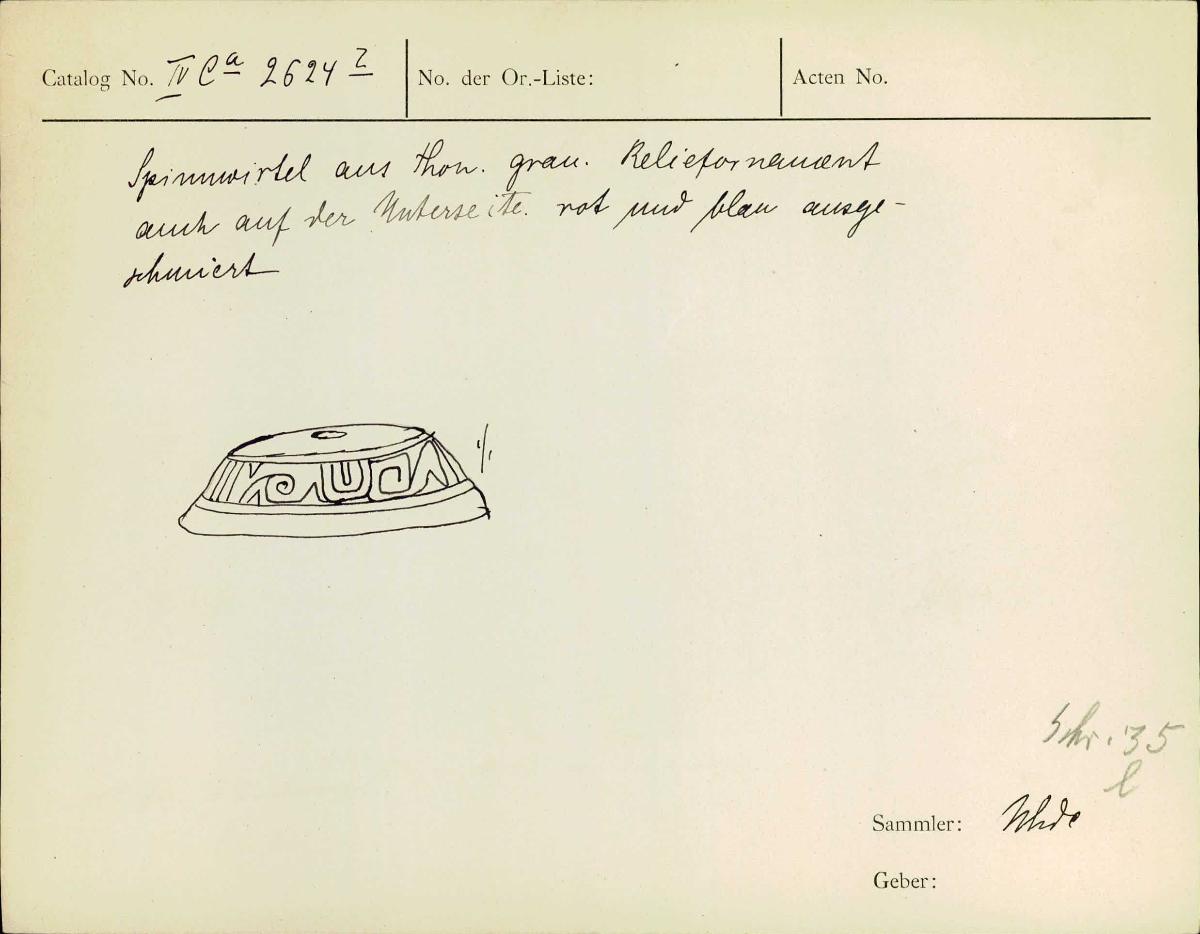 Catalog No. IV Ca 2624 z
No. der Or.-Liste:
Acten No.
Spinnwirtel aus Thon. grau. Reliefornament
auch auf der Unterseite. rot und blau ausge-
schmiert
1/1
Schr. 35
l
Sammler: Uhde
Geber: